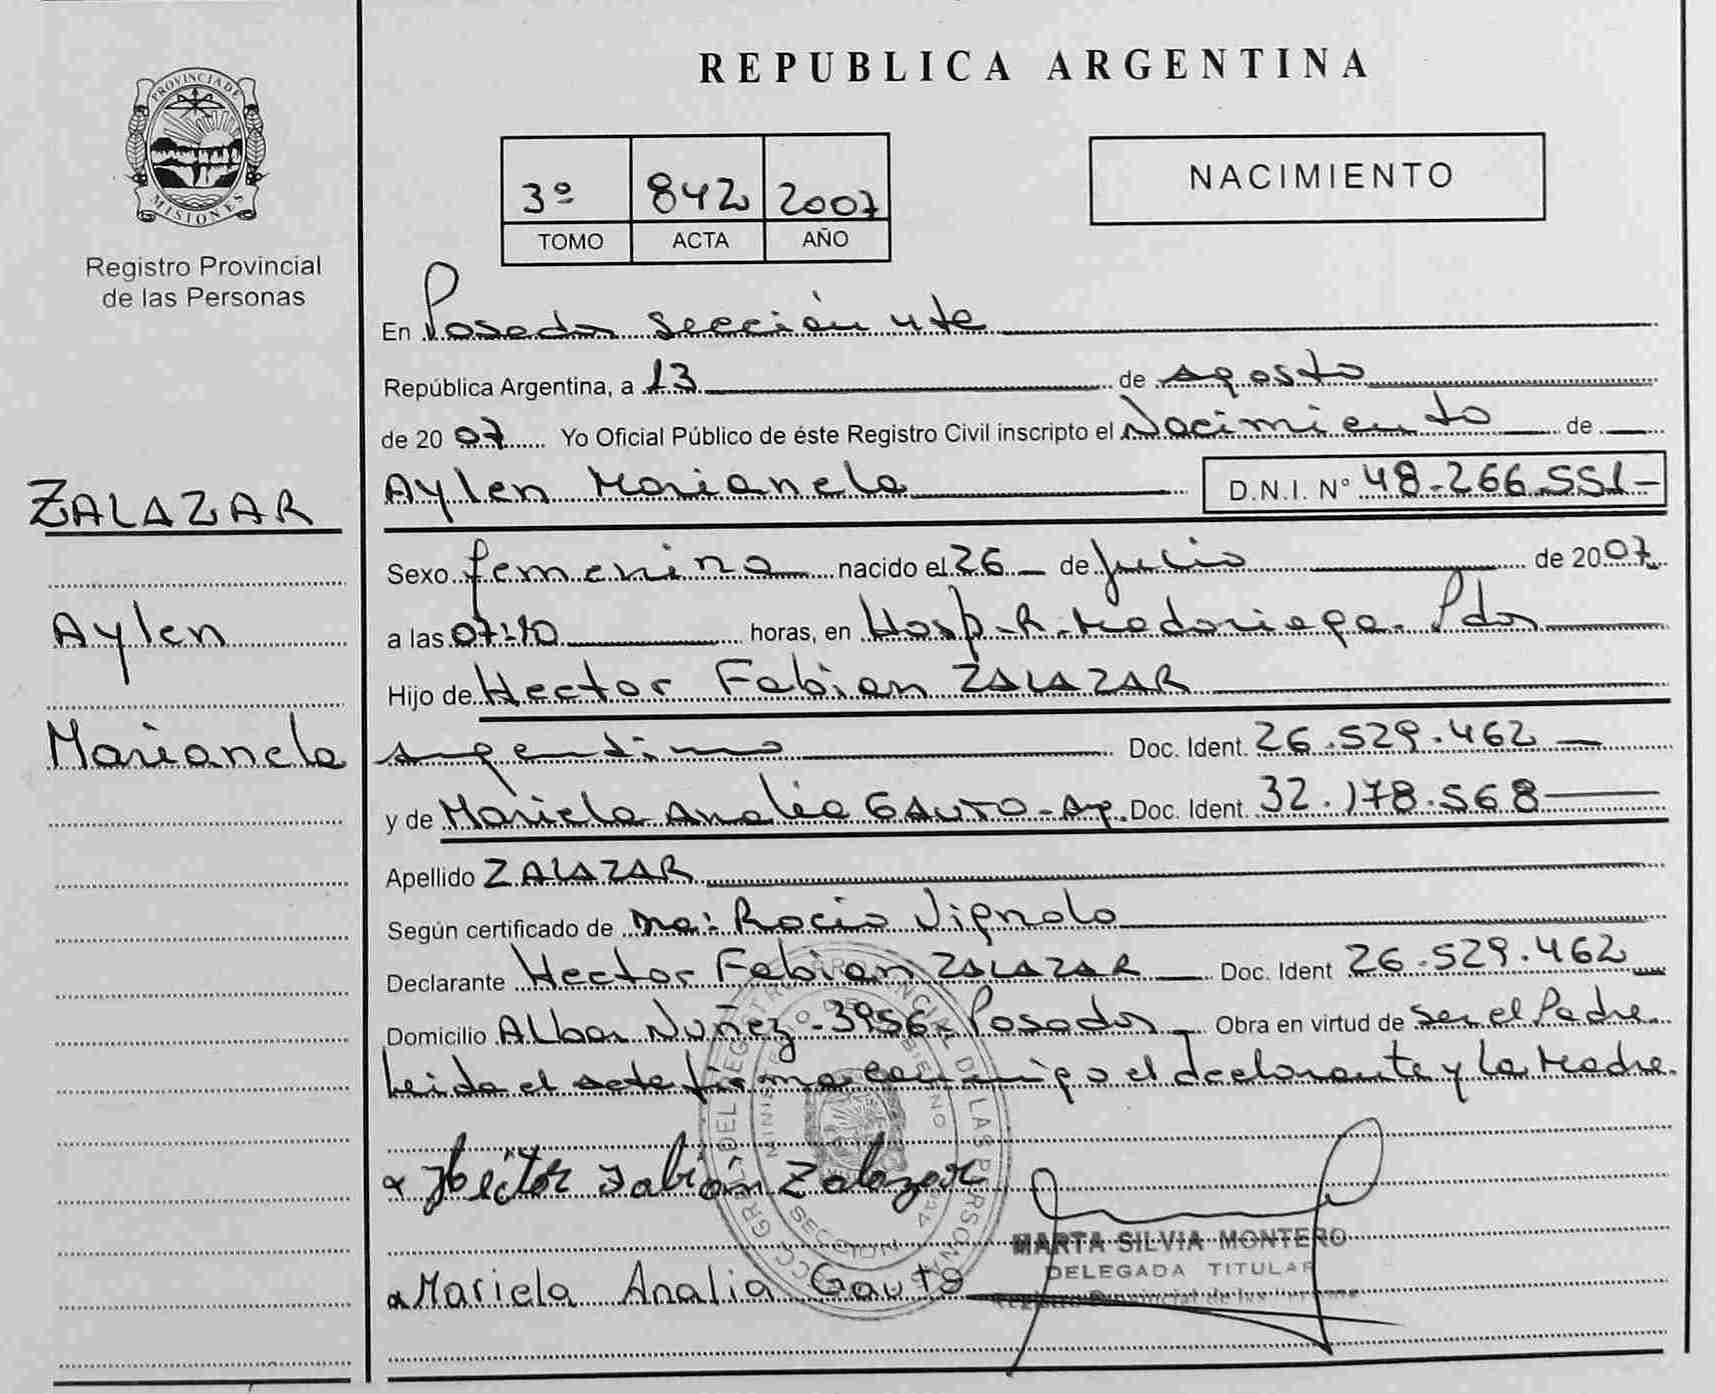 REPUBLICA ARGENTINA
PROVINCIA DE
MISIONES
Registro Provincial
de las Personas
3º 842 2007
TOMO ACTA AÑO
NACIMIENTO
ZALAZAR
Aylen
Marianela
En Posadas sección 4ta
República Argentina, a 13 de agosto
de 2007 Yo Oficial Público de éste Registro Civil inscripto el Nacimiento de
Aylen Marianela D.N.I. Nº 48.266.551-
Sexo femenina nacido el 26 de Julio de 2007
a las 07:10 horas, en Hosp. R. Madariaga. Pdas
Hijo de Hector Fabian ZALAZAR
argentino Doc. Ident. 26.529.462
y de Mariela Analia GAUTO - Ar. Doc. Ident. 32.178.568
Apellido ZALAZAR
Según certificado de Ma: Rocio Vignolo
Declarante Hector Fabian ZALAZAR Doc. Ident 26.529.462
Domicilio Alban Nuñez - 3956 - Posadas Obra en virtud de ser el Padre
Leida el acta firma conmigo el declarante y la Madre.
Héctor Fabián Zalazar
MARTA SILVIA MONTERO
DELEGADA TITULAR
Registro Provincial de las Personas
Mariela Analia Gauto